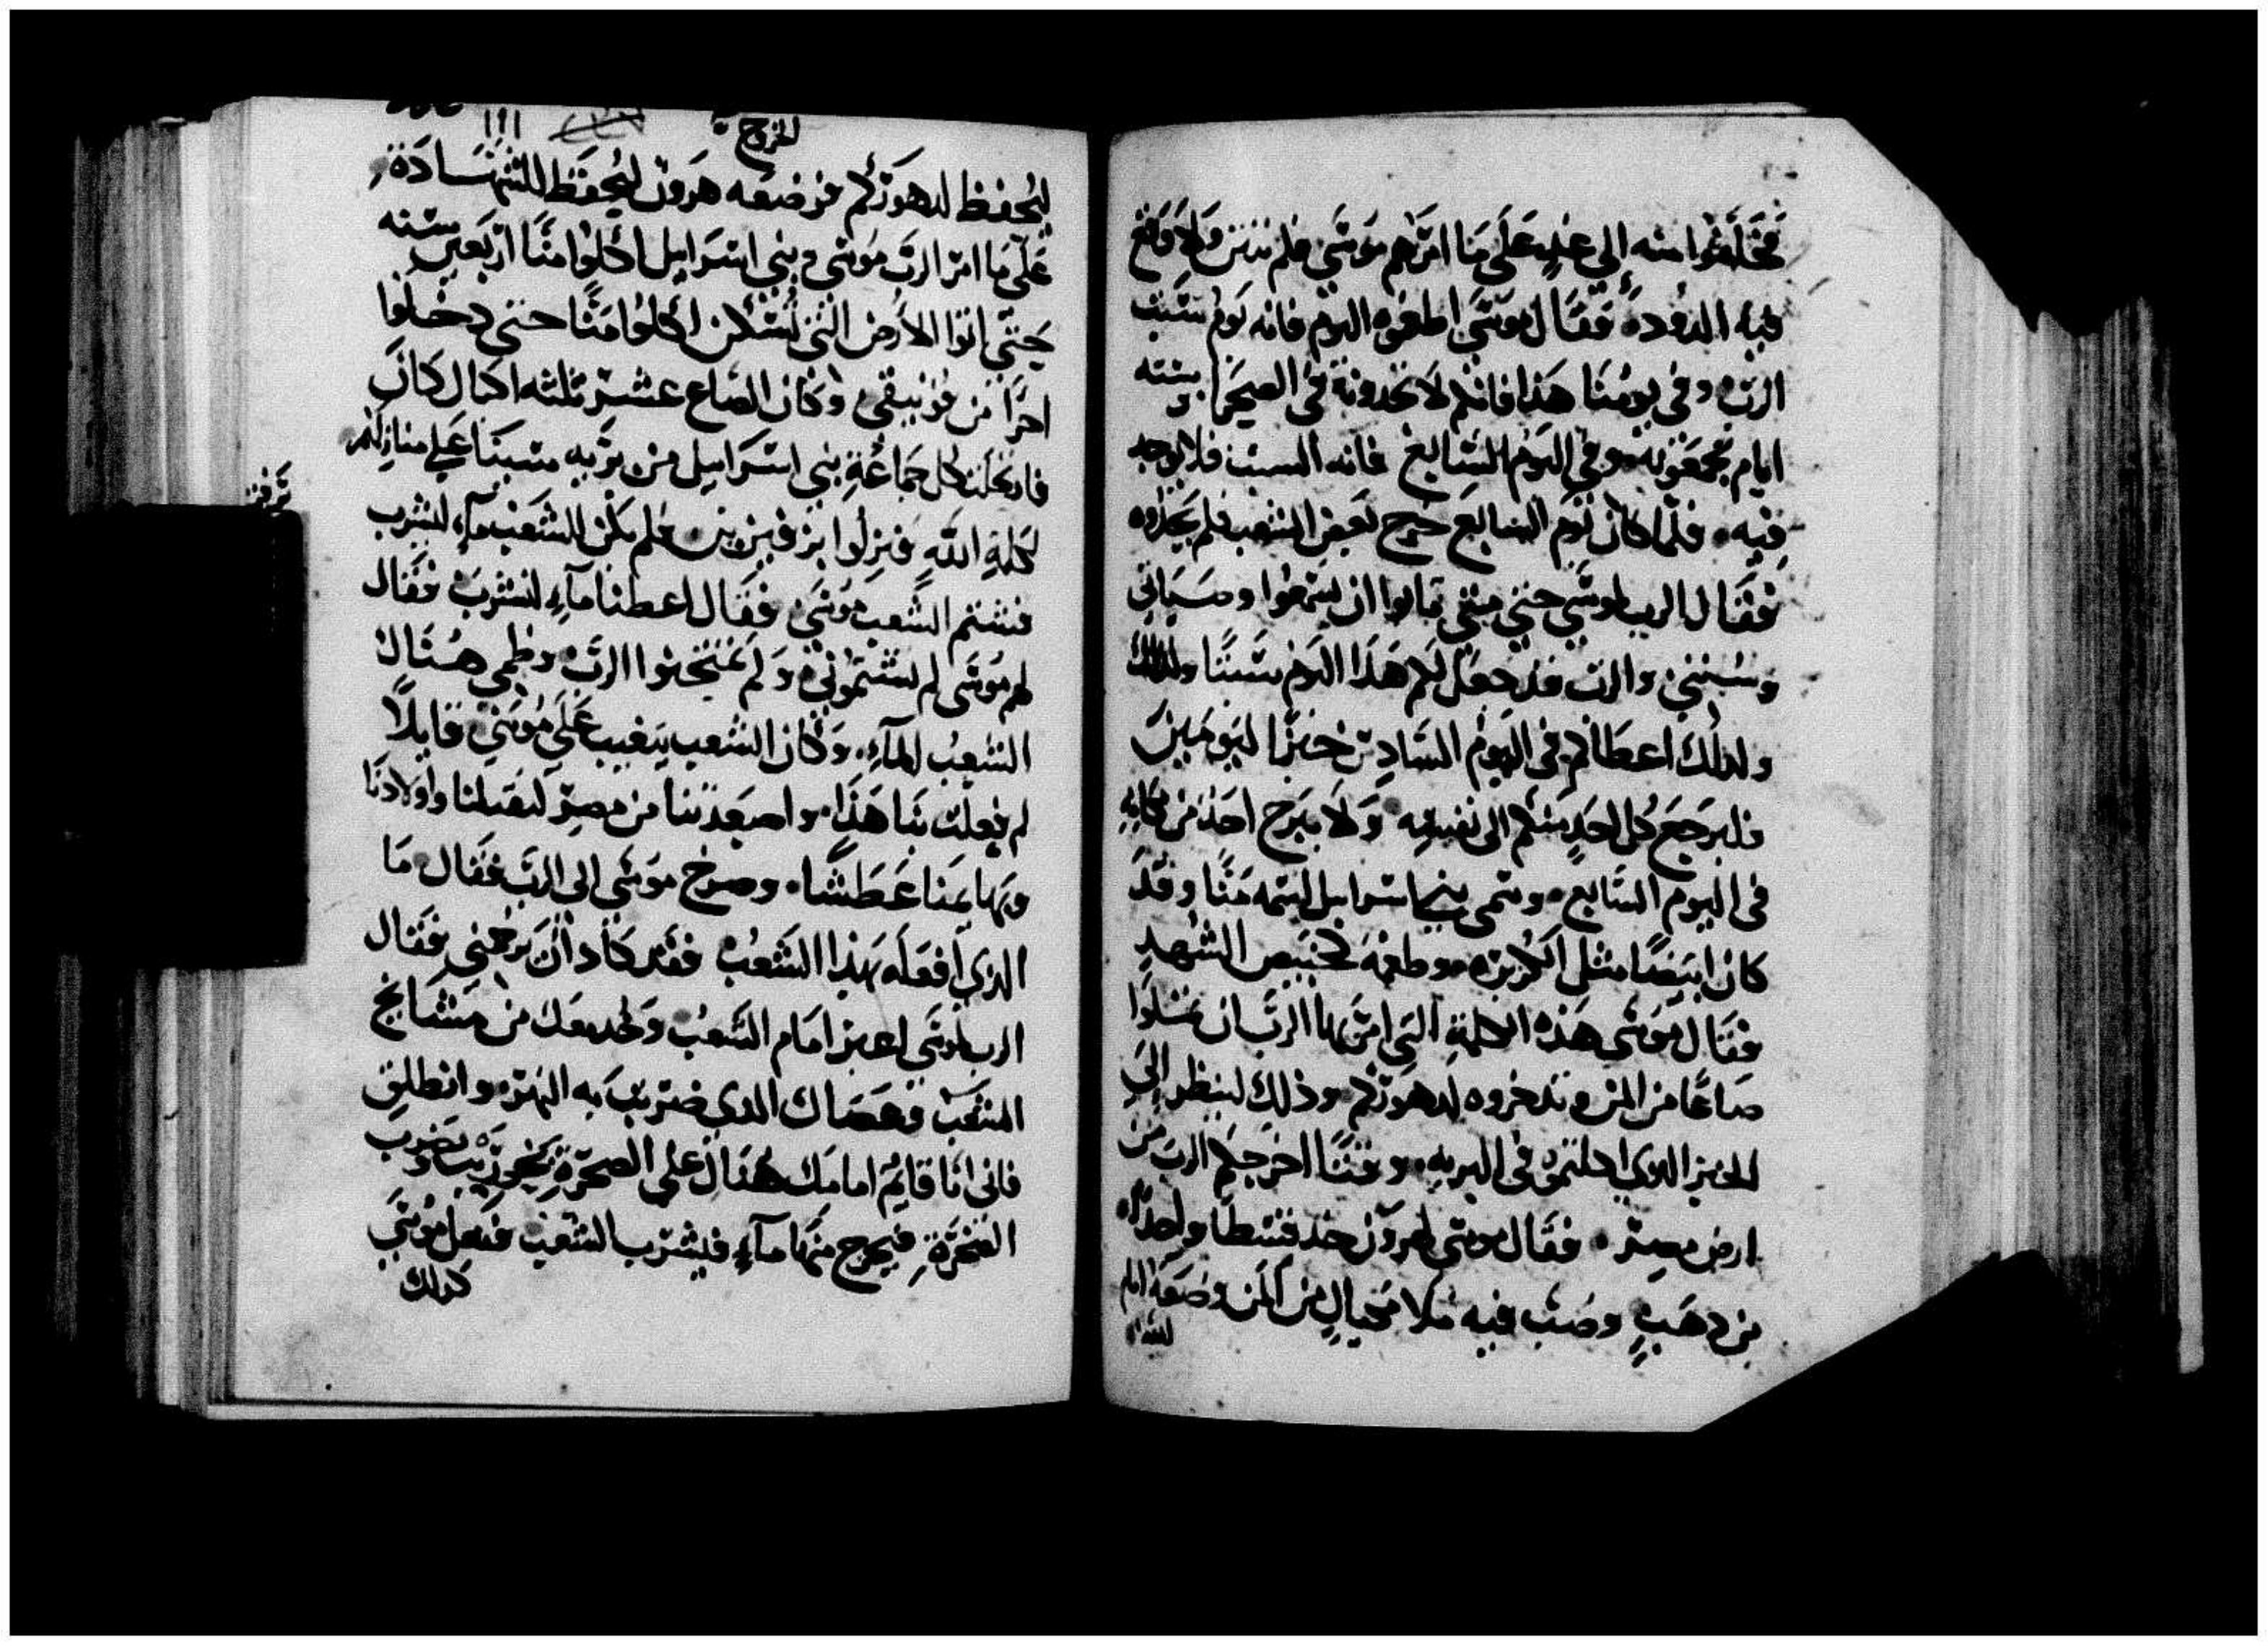 فخلفوا منه الي غدٍ علي ما امرهم موسي فلم ينتن ولا وقع
فيه الدود، فقال موسي اطعموه اليوم فانه يوم سبت
الرب وفي يومنا هذا فانكم لا تجدونه في الصحرا ستة
ايام تجمعونه وفي اليوم السابع فانه السبت فلا يوجد
فيه، فلما كان يوم السابع خرج بعض الشعب فلم يجدوه
فقال الرب لموسي حتي متي تابوا ان تسمعوا وصياتي
وسنتي والرب قد جعل لكم هذا اليوم سبتًا
ولذلك اعطاكم في اليوم السادس خبزًا ليومين
فليرجع كل احد منكم الي نفسه ولا يبرح احد من مكانه
في اليوم السابع، وسمي بني اسرايل اسمه منًا وقد
كان ابيضًا مثل الكزبره وطعمه كخبيص الشهد
فقال موسي هذه الكلمة التي امر بها الرب ان تمتلوا
صاعًا من المن وتدخروه لدهوركم وذلك لينظر الي
الخبز الذي اكلتموه في البريه، وقتًا اخرجكم الرب من
ارض مصر، فقال موسي لهرون خذ قسطًا واحدًا
من دهبٍ وصب فيه ملا مكيالٍ من المن وضعه امام
الله
الخروج
ليُحفظ لدهوركم فوضعه هرون ليُحفظ للشهادة
علي ما امر الرب موسي وبني اسرايل اكلوا منًا اربعين سنه
حتي اتوا الارض التي تُسكن اكلوا منًا حتي دخلوا
احرًا من وكان الصاع عشر ثلثه اكيال كان
فارتحلت كل جماعة بني اسرايل من بريه سينا علي منازلهم
لكلمة الله فنزلوا فلم يكن للشعب مآء ليشرب
فشتم الشعب موسي فقال اعطنا مآء لنشرب فقال
لهم موسي لم تشتموني ولم تمتحنوا الرب وظمي هناك
الشعب المآء، وكان الشعب يتغيب علي موسي قايلاً
لم فعلت بنا هذا، واصعدتنا من مصر لتقتلنا واولادنا
وبهايمنا عطشًا، وصرخ موسي الي الرب فقال ما
الذي افعله بهذا الشعب فقد كاد ان يرجمني فقال
الرب لموسي اعبر امام الشعب وخد معك من مشايخ
الشعب وعصاك الذي ضربت به النهر، وانطلق
فاني انا قايم امامك هناك علي الصخرة بحوريب وتضرب
الصخرة فيخرج منها مآء فيشرب الشعب ففعل موسي
كذلك